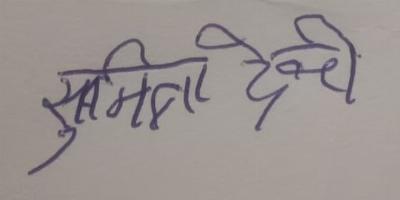 सुमित्रा देवी